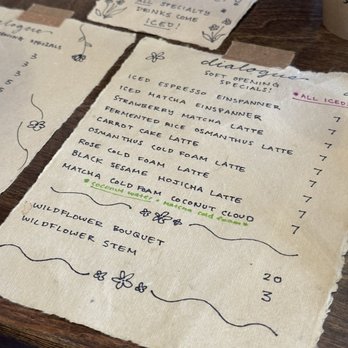 ALL SPECIALTY
DRINKS COME
ICED!
3
3
dialogue
SOFT OPENING
SPECIALS!
*ALL ICED
ICED ESPRESSO EINSPANNER 7
ICED MATCHA EINSPANNER 7
STRAWBERRY MATCHA LATTE 7
FERMENTED RICE OSMANTHUS LATTE 7
CARROT CAKE LATTE 7
OSMANTHUS COLD FOAM LATTE 7
ROSE COLD FOAM LATTE 7
BLACK SESAME HOJICHA LATTE 7
MATCHA COLD FOAM COCONUT CLOUD 7
*coconut water + matcha cold foam*
WILDFLOWER BOUQUET 20
WILDFLOWER STEM 3